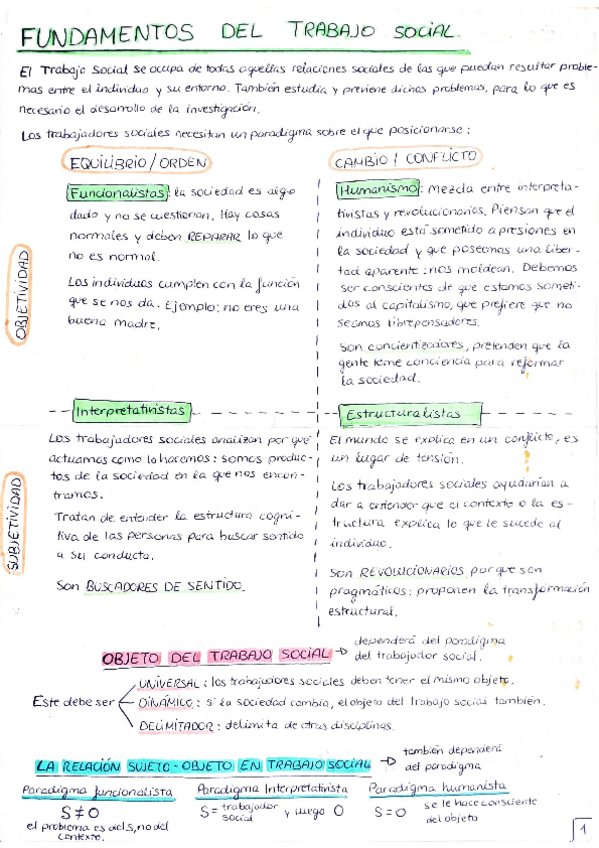 FUNDAMENTOS DEL TRABAJO SOCIAL.
El Trabajo Social se ocupa de todas aquellas relaciones sociales de las que puedan resultar proble-
mas entre el individuo y su entorno. También estudia y previene dichos problemas, para lo que es
necesario el desarrollo de la investigación.
Los trabajadores sociales necesitan un paradigma sobre el que posicionarse:
EQUILIBRIO/ORDEN
OBJETIVIDAD
Funcionalistas: la sociedad es algo
dado y no se cuestionan. Hay cosas
normales y deben REPARAR lo que
no es normal.
Los individuos cumplen con la función
que se nos da. Ejemplo: no eres una
buena madre.
CAMBIO / CONFLICTO
Humanismo: mezcla entre interpreta-
tivistas y revolucionarios. Piensan que el
individuo está sometido a presiones en
la sociedad y que poseemos una liber-
tad aparente: nos moldean. Debemos
ser conscientes de que estamos someti-
dos al capitalismo, que prefiere que no
seamos librepensadores.
Son concientizadores, pretenden que la
gente tome conciencia para reformar
la sociedad.
SUBJETIVIDAD
Interpretativistas
Los trabajadores sociales analizan por qué
actuamos como lo hacemos: somos produc-
tos de la sociedad en la que nos encon-
tramos.
Tratan de entender la estructura cogni-
tiva de las personas para buscar sentido
a su conducta.
Son BUSCADORES DE SENTIDO.
Estructuralistas
El mundo se explica en un conflicto, es
un lugar de tensión.
Los trabajadores sociales ayudarían a
dar a entender que el contexto o la es-
tructura explica lo que le sucede al
individuo.
Son REVOLUCIONARIOS porque son
pragmáticos: proponen la transformación
estructural.
OBJETO DEL TRABAJO SOCIAL → dependerá del paradigma
del trabajador social.
Este debe ser
UNIVERSAL: los trabajadores sociales deben tener el mismo objeto.
DINÁMICO: si la sociedad cambia, el objeto del trabajo social también.
DELIMITADOR: delimita de otras disciplinas.
LA RELACIÓN SUJETO-OBJETO EN TRABAJO SOCIAL → también dependerá
del paradigma
Paradigma funcionalista
S ≠ O
el problema es del S, no del
contexto.
Paradigma Interpretativista
S = trabajador social y luego O
Paradigma humanista
S = O se le hace consciente
del objeto
1